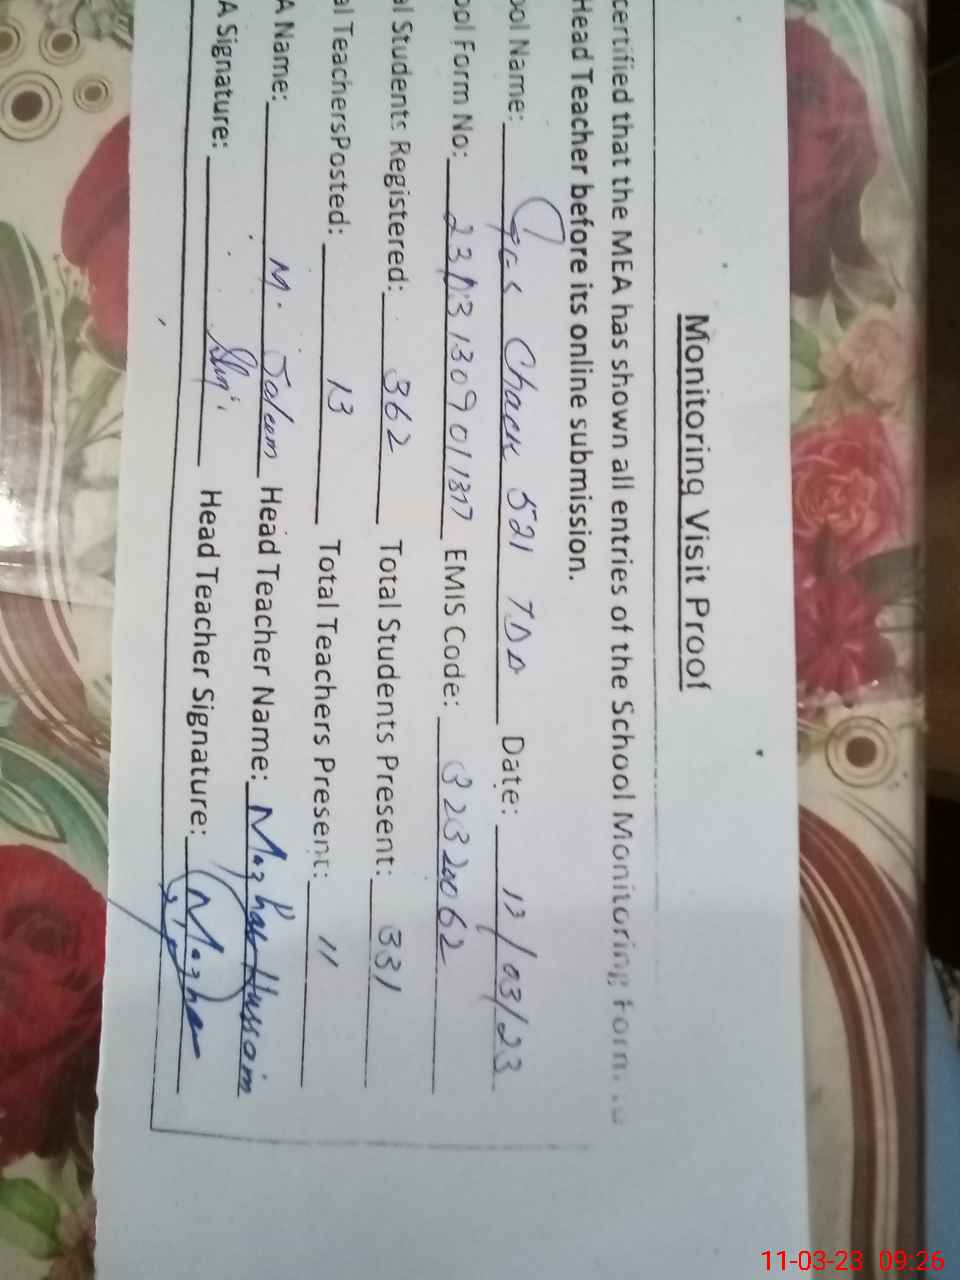 Monitoring Visit Proof
certified that the MEA has shown all entries of the School Monitoring Form to
Head Teacher before its online submission.
ool Name: Ges Chack 521 TDA Date: 13/03/23
ool Form No: 1309011317 EMIS Code: 32320062
al Students Registered: 362 Total Students Present: 331
al TeachersPosted: 13 Total Teachers Present: 11
A Name: M. Head Teacher Name: Mazhar Hussain
A Signature: Head Teacher Signature: Mazhar
11-03-23 09:26